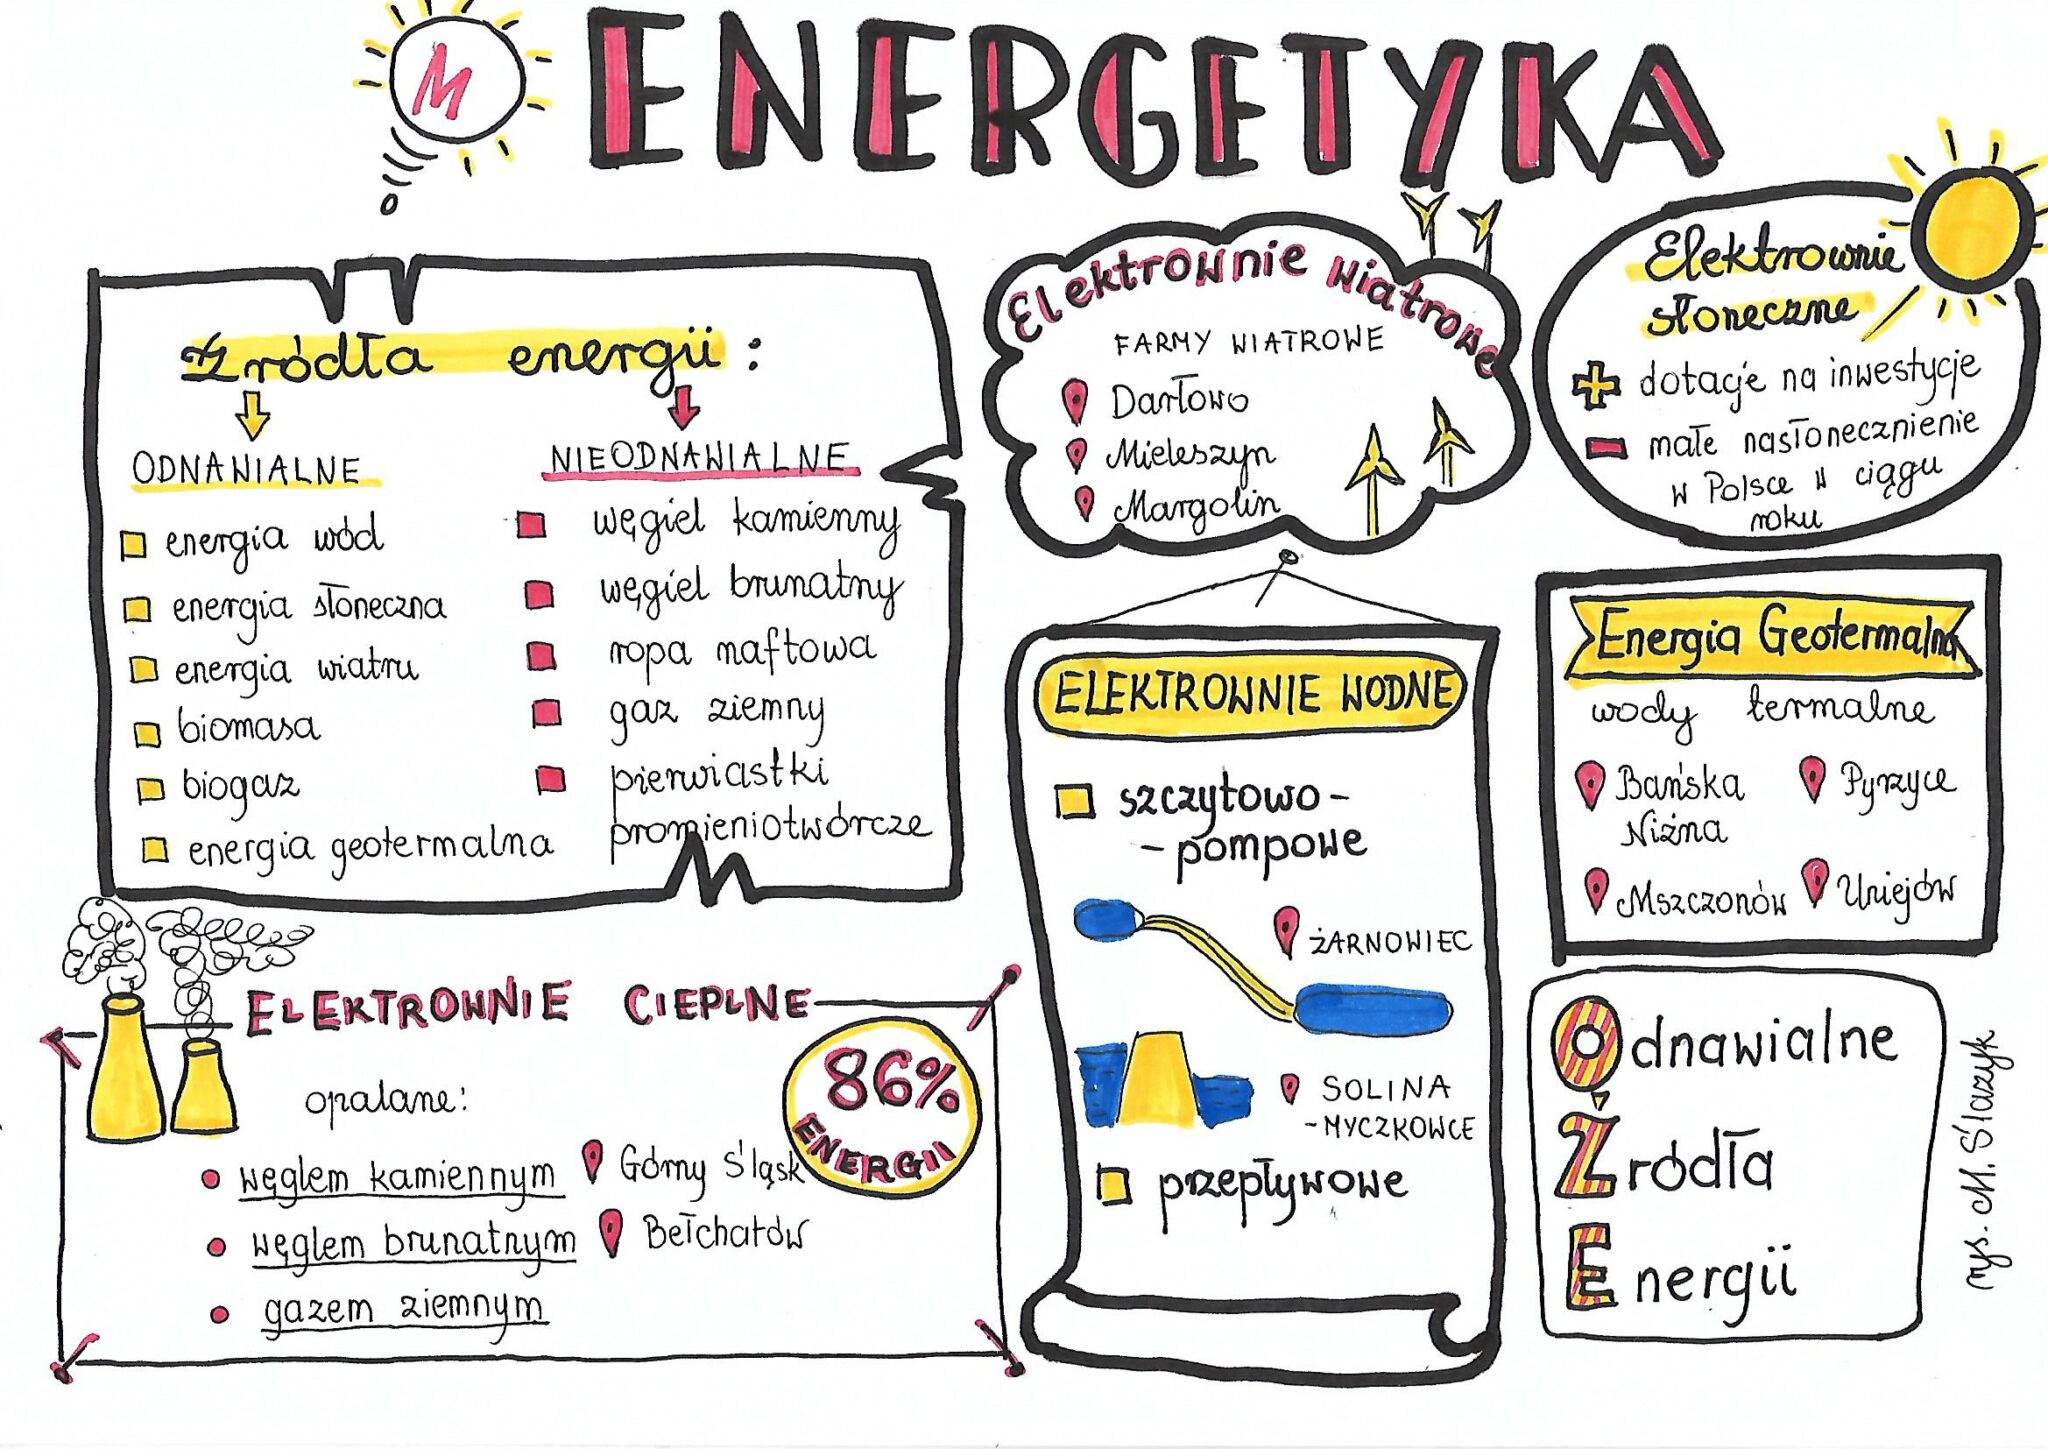 M
ENERGETYKA
Źródła energii:
ODNAWIALNE
energia wód
energia słoneczna
energia wiatru
biomasa
biogaz
energia geotermalna
NIEODNAWIALNE
węgiel kamienny
węgiel brunatny
ropa naftowa
gaz ziemny
pierwiastki
promieniotwórcze
Elektrownie wiatrowe
FARMY WIATROWE
Darłowo
Mieleszyn
Margolin
Elektrownie
słoneczne
+ dotacje na inwestycje
- małe nasłonecznienie
w Polsce w ciągu
roku
ELEKTROWNIE CIEPLNE
86%
ENERGII
opalane:
węglem kamiennym Górny Śląsk
węglem brunatnym Bełchatów
gazem ziemnym
ELEKTROWNIE WODNE
szczytowo-
-pompowe
ŻARNOWIEC
SOLINA
-MYCZKOWCE
przepływowe
Energia Geotermalna
wody termalne
Bańska
Niżna
Pyrzyce
Mszczonów
Uniejów
Odnawialne
Źródła
Energii
rys. M. Ślazyk